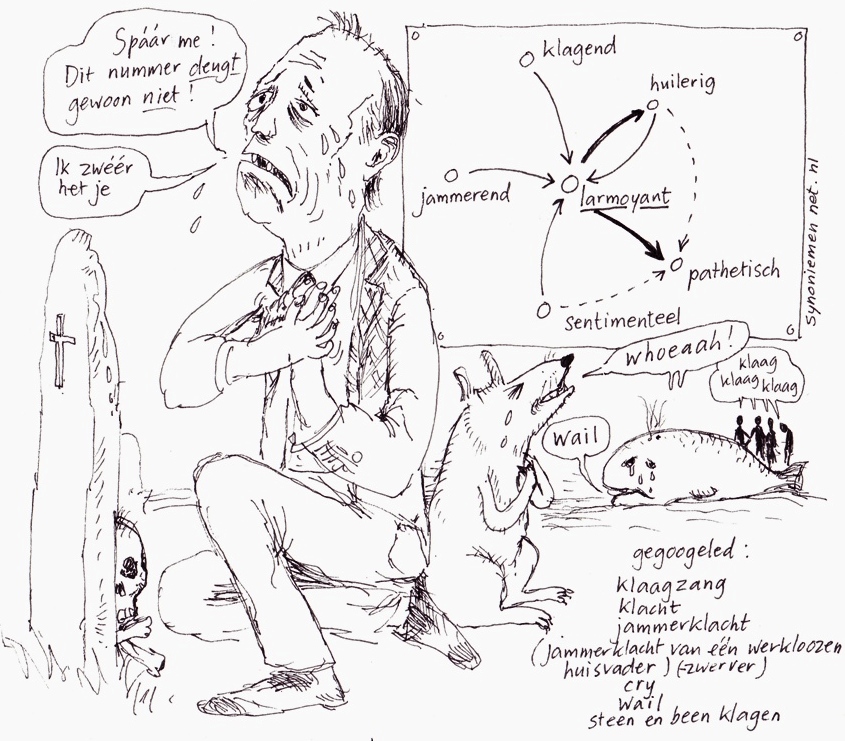 Spáár me!
Dit nummer deugt
gewoon niet!
Ik zwéér
het je
klagend
huilerig
jammerend
larmoyant
pathetisch
sentimenteel
synoniemen net. nl
whoeaah!
klaag
klaag klaag
wail
gegoogeled :
klaagzang
klacht
jammerklacht
(jammerklacht van één werkloozen
huisvader) (-zwerver)
cry
wail
steen en been klagen